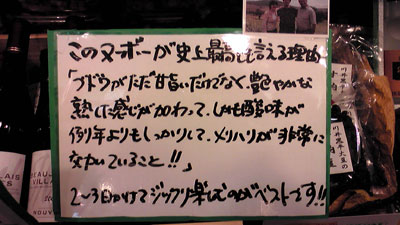 このヌーボーが史上最高と言える理由
「ブドウがただ甘いだけでなく、艶やかな
熟した感じが加わって、しかも酸味が
例年よりもしっかりして、メリハリが非常に
効いていること!!」
2〜3日かけてジックリ楽しむのがベストです!!
BEAUJ
VILLA